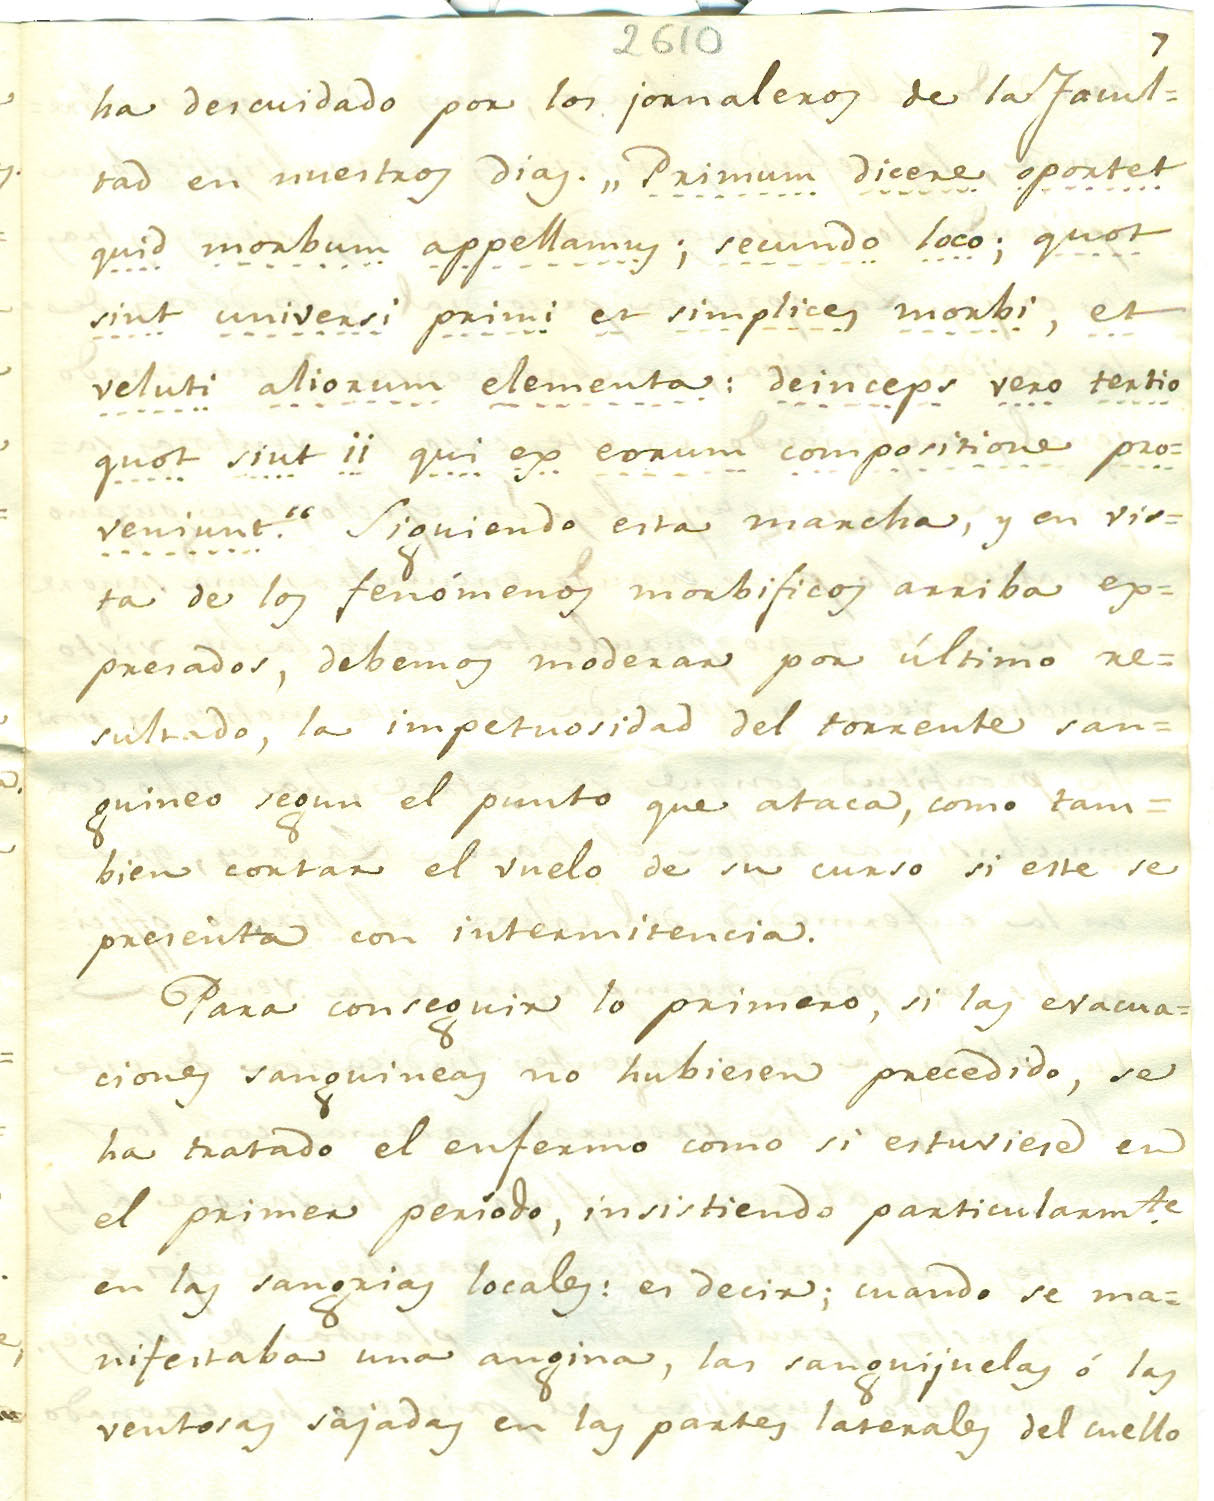 2610
7
ha descuidado por los jornaleros de la Facul=
tad en nuestros dias. „Primum dicere oportet
quid morbum appellamus; secundo loco; quot
sint universi primi et simplices morbi, et
veluti aliorum elementa: deinceps vero tertio
quot sint ii qui ex eorum compositione pro=
veniunt.“ Siguiendo esta marcha, y en vis=
ta de los fenómenos morbificos arriba ex=
presados, debemos moderar por último re=
sultado, la impetuosidad del torrente san=
guineo segun el punto que ataca, como tam=
bien cortar el vuelo de su curso si este se
presenta con intermitencia.
Para conseguir lo primero, si las evacua=
ciones sanguineas no hubiesen precedido, se
ha tratado el enfermo como si estuviese en
el primer período, insistiendo particularmte
en las sangrias locales: es decir; cuando se ma=
nifestaba una angina, las sanguijuelas ó las
ventosas sajadas en las partes laterales del cuello